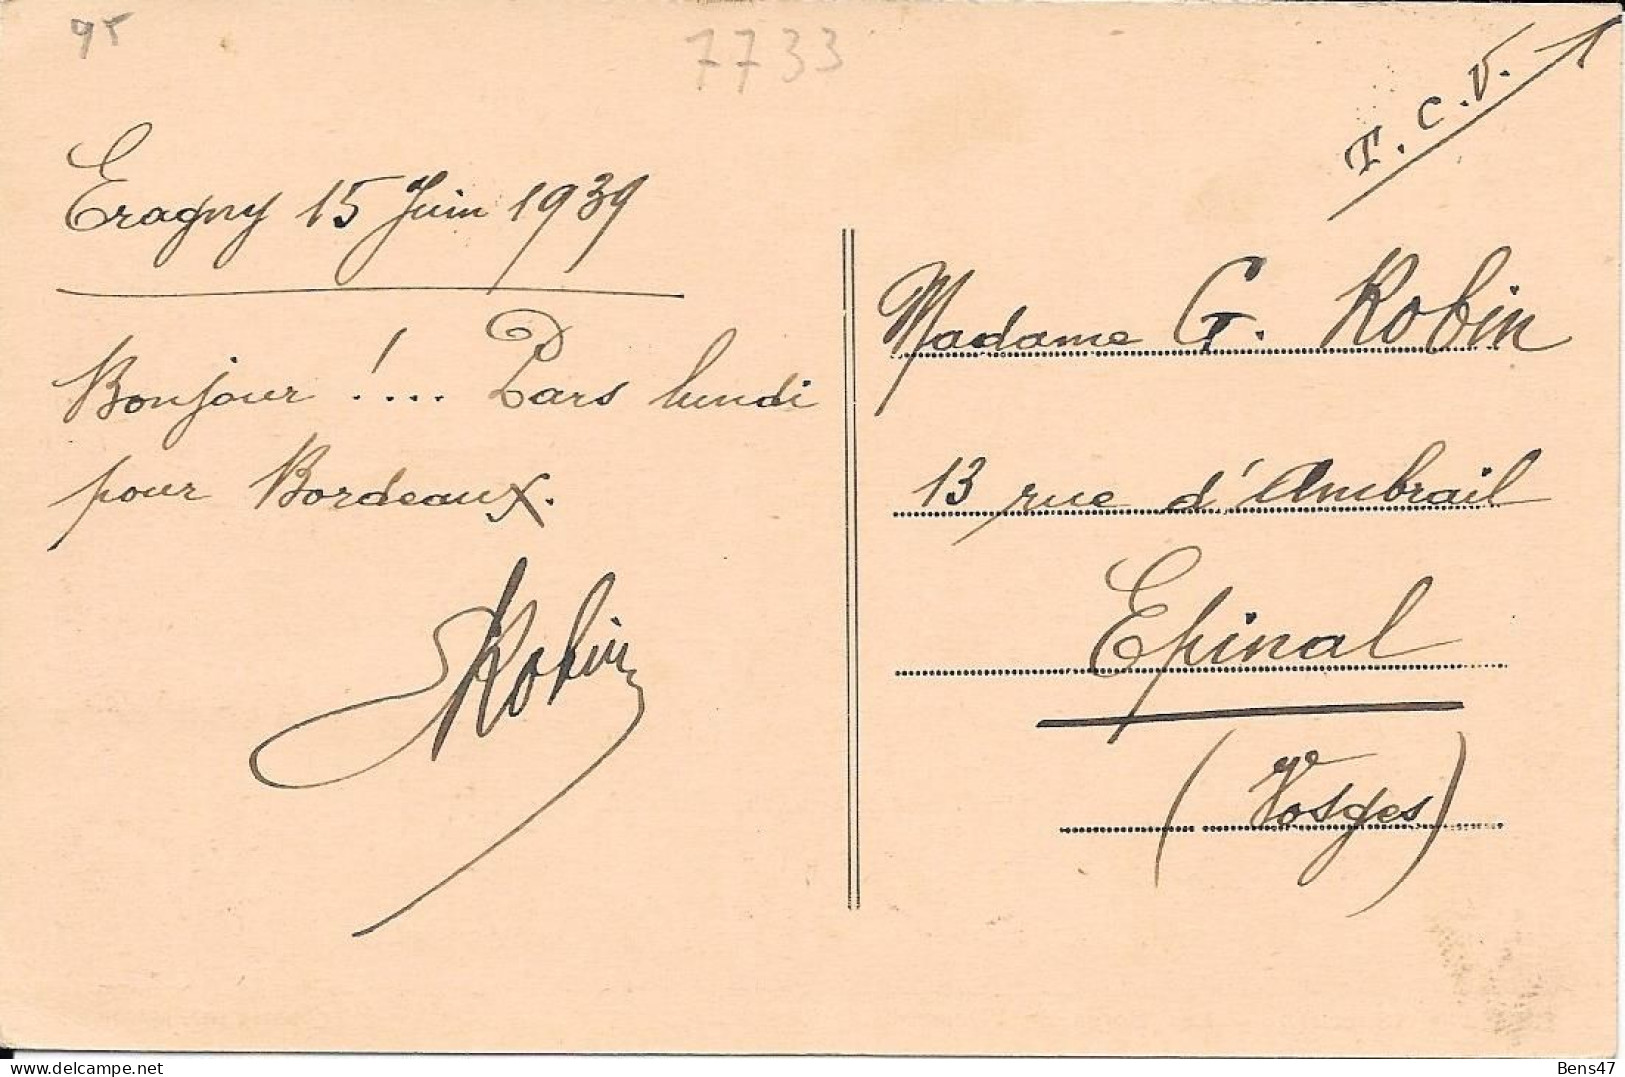 95
7733
T.C.V.
Eragny 15 Juin 1939
Bonjour !... Pars lundi
pour Bordeaux.
Robin
Madame G. Robin
13 rue d'Ambrail
Epinal
(Vosges)
Bens47